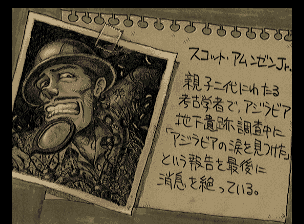 スコット・アムンゼンJr.
親子二代にわたる
考古学者で、アジラビア
地下遺跡調査中に
「アジラビアの涙を見つけた」
という報告を最後に
消息を絶っている。